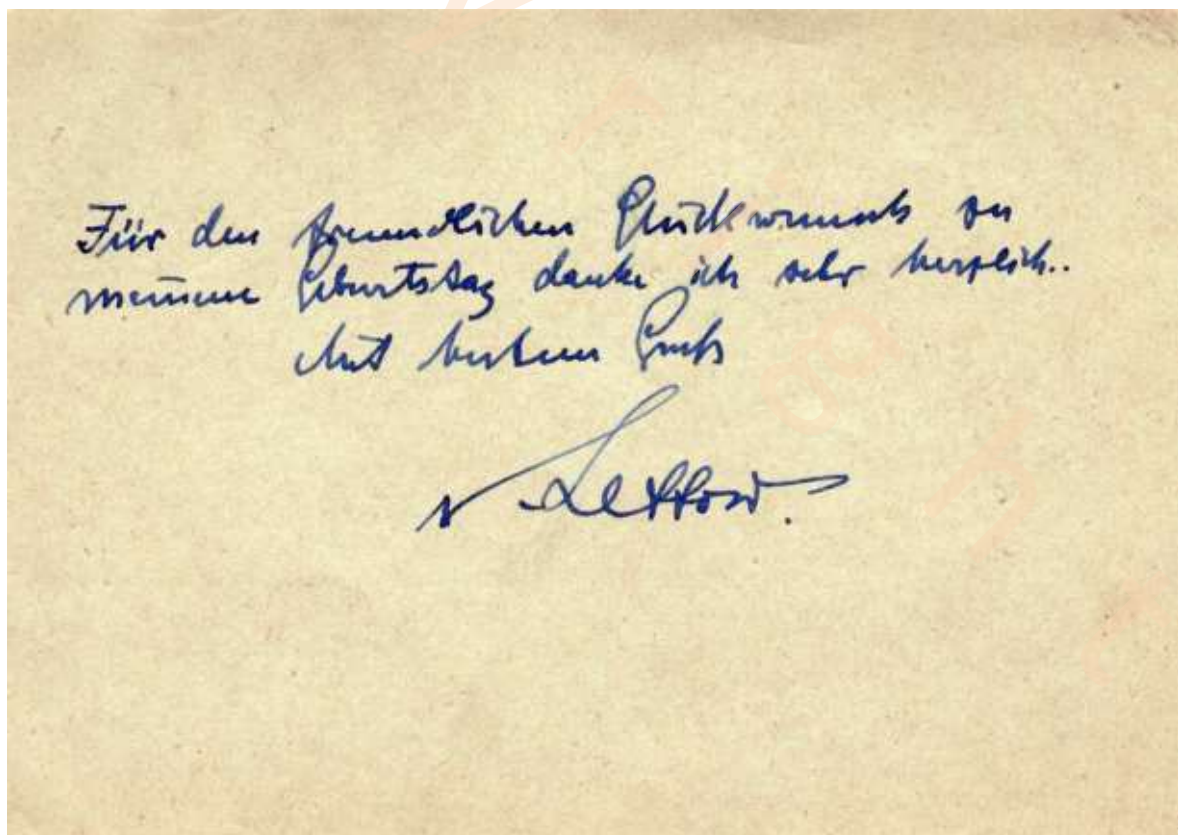 Für den freundlichen Glückwunsch zu
meinem Geburtstag danke ich sehr herzlich..
Mit bestem Gruß
v. Lettow.